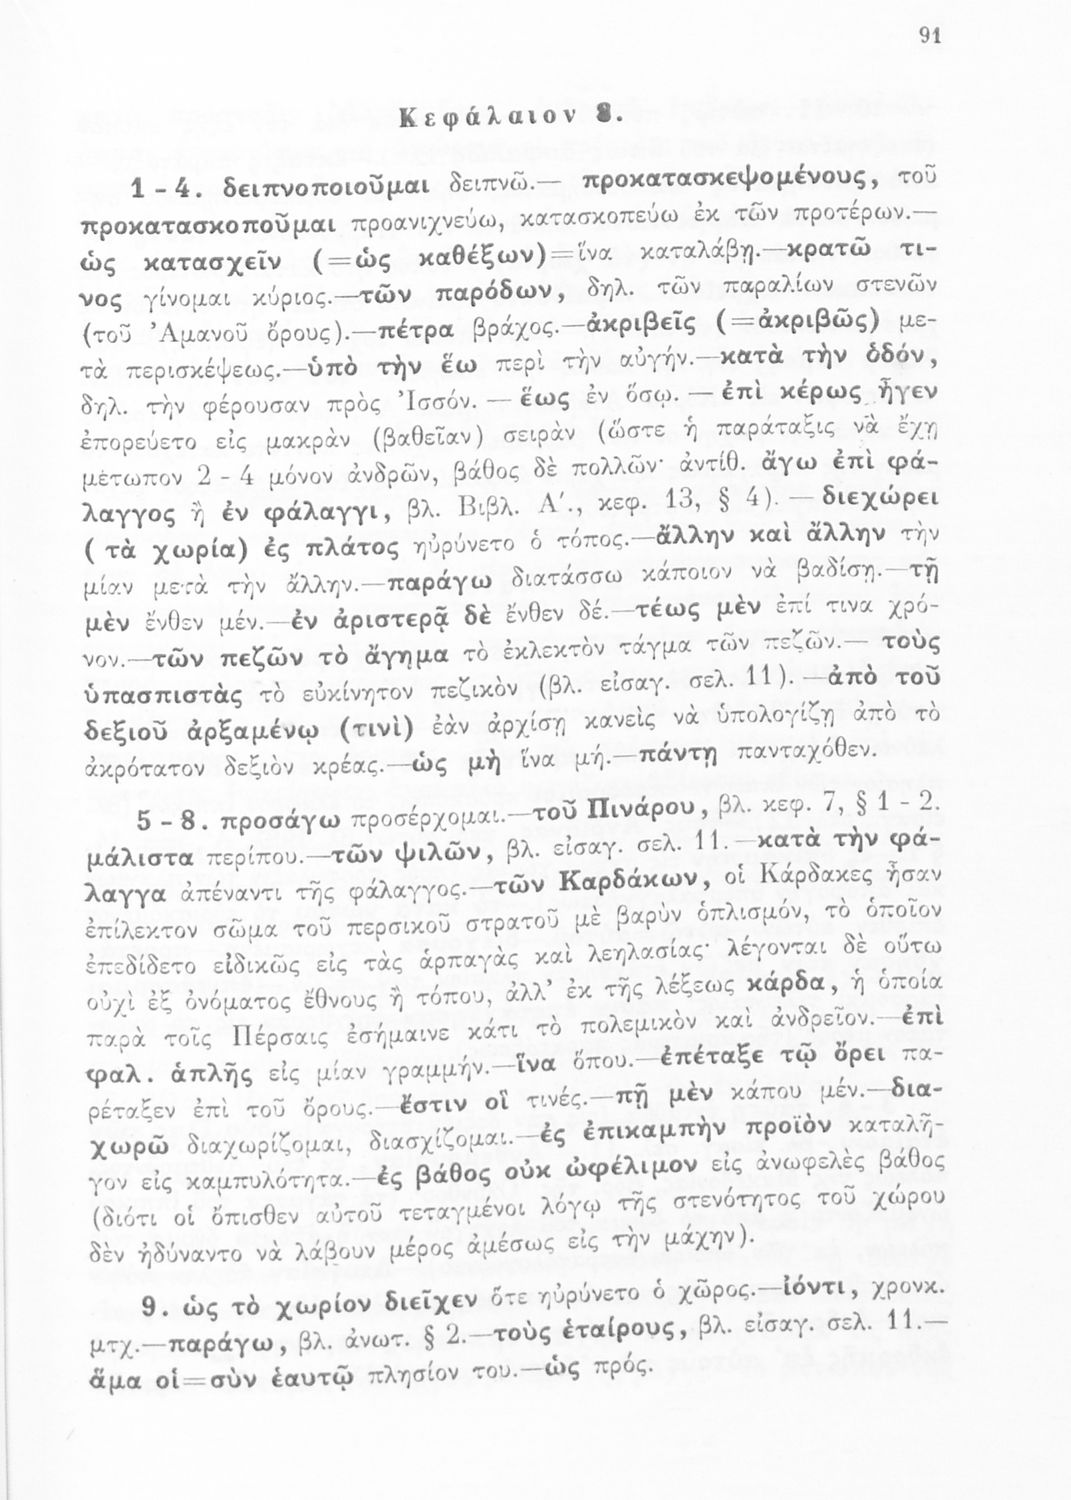 91
Κεφάλαιον 8.
1 - 4. δειπνοποιοῦμαι δειπνῶ.— προκατασκεψομένους, τοῦ
προκατασκοποῦμαι προανιχνεύω, κατασκοπεύω ἐκ τῶν προτέρων.—
ὡς κατασχεῖν (=ὡς καθέξων)=ἵνα καταλάβῃ.—κρατῶ τι-
νος γίνομαι κύριος.—τῶν παρόδων, δηλ. τῶν παραλίων στενῶν
(τοῦ Ἀμανοῦ ὄρους).—πέτρα βράχος.—ἀκριβεῖς (=ἀκριβῶς) με-
τὰ περισκέψεως.—ὑπὸ τὴν ἕω περὶ τὴν αὐγήν.—κατὰ τὴν ὁδόν,
δηλ. τὴν φέρουσαν πρὸς Ἰσσόν. — ἕως ἐν ὅσῳ. — ἐπὶ κέρως ἦγεν
ἐπορεύετο εἰς μακρὰν (βαθεῖαν) σειρὰν (ὥστε ἡ παράταξις νὰ ἔχῃ
μέτωπον 2 - 4 μόνον ἀνδρῶν, βάθος δὲ πολλῶν· ἀντίθ. ἄγω ἐπὶ φά-
λαγγος ἢ ἐν φάλαγγι, βλ. Βιβλ. Α'., κεφ. 13, § 4). — διεχώρει
( τὰ χωρία) ἐς πλάτος ηὐρύνετο ὁ τόπος.—ἄλλην καὶ ἄλλην τὴν
μίαν μετὰ τὴν ἄλλην.—παράγω διατάσσω κάποιον νὰ βαδίσῃ.—τῇ
μὲν ἔνθεν μέν.—ἐν ἀριστερᾷ δὲ ἔνθεν δέ.—τέως μὲν ἐπί τινα χρό-
νον.—τῶν πεζῶν τὸ ἄγημα τὸ ἐκλεκτὸν τάγμα τῶν πεζῶν.— τοὺς
ὑπασπιστὰς τὸ εὐκίνητον πεζικὸν (βλ. εἰσαγ. σελ. 11).—ἀπὸ τοῦ
δεξιοῦ ἀρξαμένῳ (τινὶ) ἐὰν ἀρχίσῃ κανεὶς νὰ ὑπολογίζῃ ἀπὸ τὸ
ἀκρότατον δεξιὸν κρέας.—ὡς μὴ ἵνα μή.—πάντῃ πανταχόθεν.
5 - 8. προσάγω προσέρχομαι.—τοῦ Πινάρου, βλ. κεφ. 7, § 1 - 2.
μάλιστα περίπου.—τῶν ψιλῶν, βλ. εἰσαγ. σελ. 11.—κατὰ τὴν φά-
λαγγα ἀπέναντι τῆς φάλαγγος.—τῶν Καρδάκων, οἱ Κάρδακες ἦσαν
ἐπίλεκτον σῶμα τοῦ περσικοῦ στρατοῦ μὲ βαρὺν ὁπλισμόν, τὸ ὁποῖον
ἐπεδίδετο εἰδικῶς εἰς τὰς ἁρπαγὰς καὶ λεηλασίας· λέγονται δὲ οὕτω
οὐχὶ ἐξ ὀνόματος ἔθνους ἢ τόπου, ἀλλ' ἐκ τῆς λέξεως κάρδα, ἡ ὁποία
παρὰ τοῖς Πέρσαις ἐσήμαινε κάτι τὸ πολεμικὸν καὶ ἀνδρεῖον.—ἐπὶ
φαλ. ἁπλῆς εἰς μίαν γραμμήν.—ἵνα ὅπου.—ἐπέταξε τῷ ὄρει πα-
ρέταξεν ἐπὶ τοῦ ὄρους.—ἔστιν οἳ τινές.—πῇ μὲν κάπου μέν.—δια-
χωρῶ διαχωρίζομαι, διασχίζομαι.—ἐς ἐπικαμπὴν προϊὸν καταλῆ-
γον εἰς καμπυλότητα.—ἐς βάθος οὐκ ὠφέλιμον εἰς ἀνωφελὲς βάθος
(διότι οἱ ὄπισθεν αὐτοῦ τεταγμένοι λόγῳ τῆς στενότητος τοῦ χώρου
δὲν ἠδύναντο νὰ λάβουν μέρος ἀμέσως εἰς τὴν μάχην).
9. ὡς τὸ χωρίον διεῖχεν ὅτε ηὐρύνετο ὁ χῶρος.—ἰόντι, χρονκ.
μτχ.—παράγω, βλ. ἀνωτ. § 2.—τοὺς ἑταίρους, βλ. εἰσαγ. σελ. 11.—
ἅμα οἱ=σὺν ἑαυτῷ πλησίον του.—ὡς πρός.